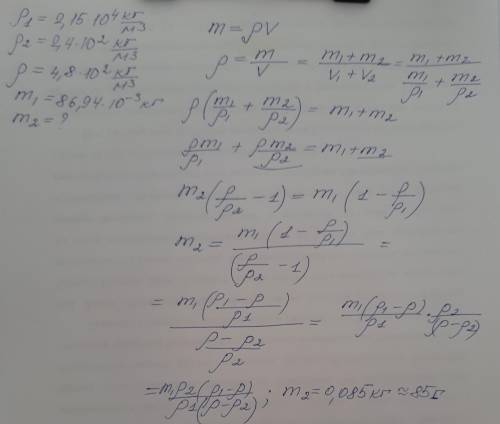 ρ1 = 2,15·10⁴ кг/м3
ρ2 = 2,4·10² кг/м3
ρ = 4,8·10² кг/м3
m1 = 86,94·10⁻³ кг
m2 = ?
m = ρV
ρ = m/V = (m1+m2)/(V1+V2) = (m1+m2)/(m1/ρ1 + m2/ρ2)
ρ(m1/ρ1 + m2/ρ2) = m1+m2
ρm1/ρ1 + ρm2/ρ2 = m1+m2
m2(ρ/ρ2 − 1) = m1(1 − ρ/ρ1)
m2 = m1(1 − ρ/ρ1)/(ρ/ρ2 − 1) =
= m1((ρ1−ρ)/ρ1)/((ρ−ρ2)/ρ2) = m1(ρ1−ρ)/ρ1 · ρ2/(ρ−ρ2)
= m1ρ2(ρ1−ρ)/ρ1(ρ−ρ2) ; m2 = 0,085кг ≈ 85г